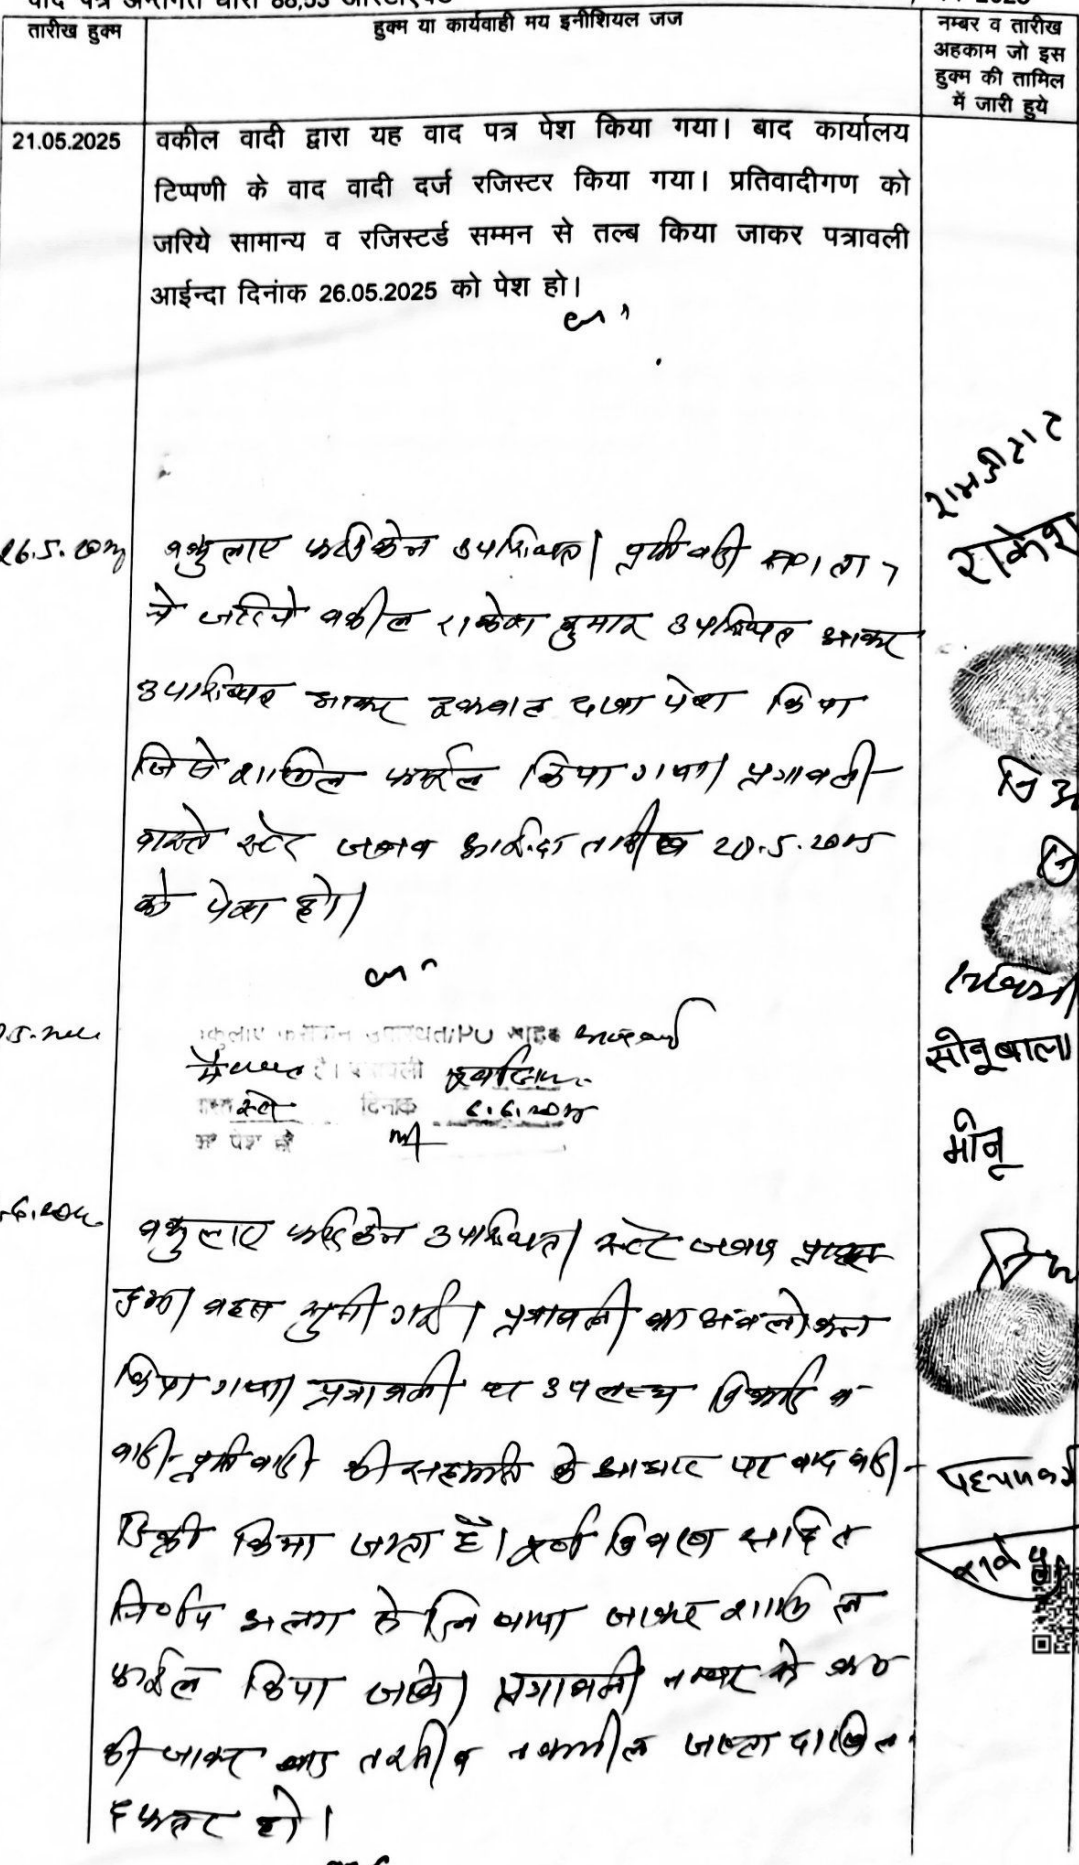 वाद पत्र अन्तर्गत धारा 88,53 आरटीएक्ट
तारीख हुक्म
हुक्म या कार्यवाही मय इनीशियल जज
नम्बर व तारीख
अहकाम जो इस
हुक्म की तामिल
में जारी हुये
21.05.2025
वकील वादी द्वारा यह वाद पत्र पेश किया गया। बाद कार्यालय
टिप्पणी के वाद वादी दर्ज रजिस्टर किया गया। प्रतिवादीगण को
जरिये सामान्य व रजिस्टर्ड सम्मन से तल्ब किया जाकर पत्रावली
आईन्दा दिनांक 26.05.2025 को पेश हो।
वकुलाए फरिकेन उपस्थित। प्रतिवादी
ने जरिये वकील राकेश कुमार उपस्थित आकर
उपस्थित आकर दावा पेश किया
जिसे शामिल फाईल किया गया। पत्रावली
वास्ते स्टेट जवाब आईन्दा तारीख
को पेश हो।
वकुलाए फरीकेन उपस्थित/PO साहब
दिनांक 6.6.2025
को पेश हो
वकुलाए फरिकेन उपस्थित। स्टेट जवाब प्राप्त
हुआ। बहस सुनी गई। पत्रावली का अवलोकन
किया गया। पत्रावली पर उपलब्ध रिकार्ड व
वादी-प्रतिवादी की सहमति के आधार पर वाद वादी
डिक्री किया जाता है। पूर्ण विवरण सहित
निर्णय अलग से लिखाया जाकर शामिल
फाईल किया जावे। पत्रावली नम्बर से कम
की जाकर बाद तरतीब तकमील जाब्ता दाखिल
दफ्तर हो।
राकेश
सोनूबाला
मोनू